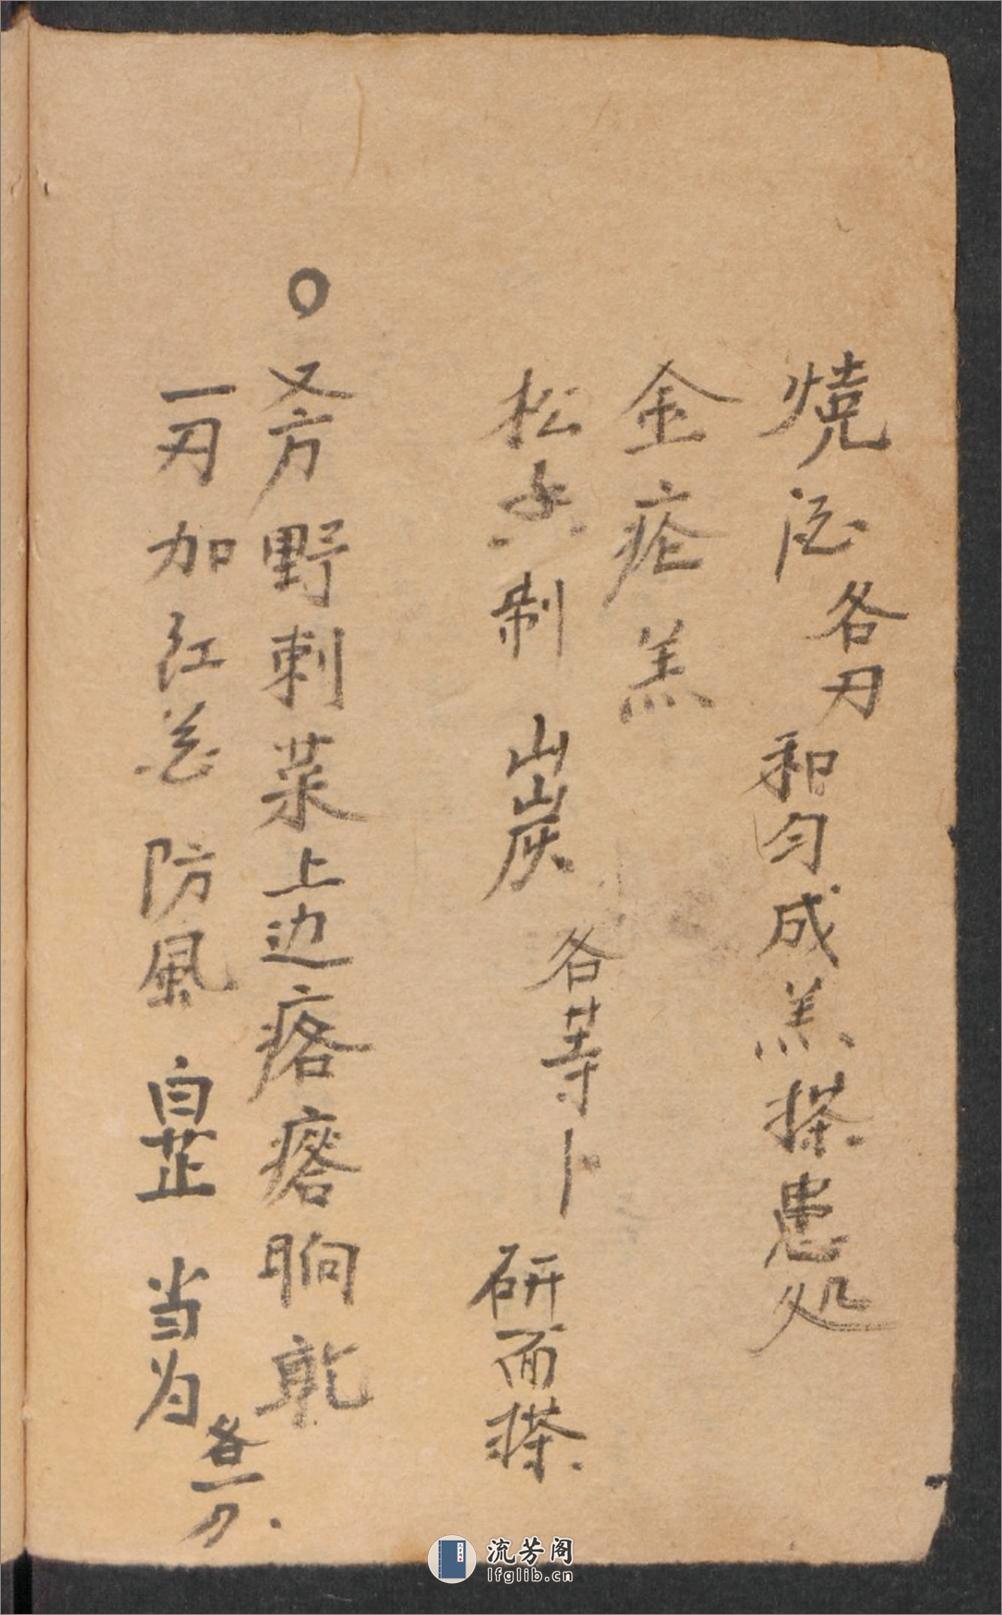 燒酒各刃和匀成羔搽患处
金疮羔
松香制 山炭 各等卜 研面搽
〇又方野刺菜上边瘩瘩晌乾
一刃加红花 防風 白芷 当为各一刀
流芳阁
lfglib.cn